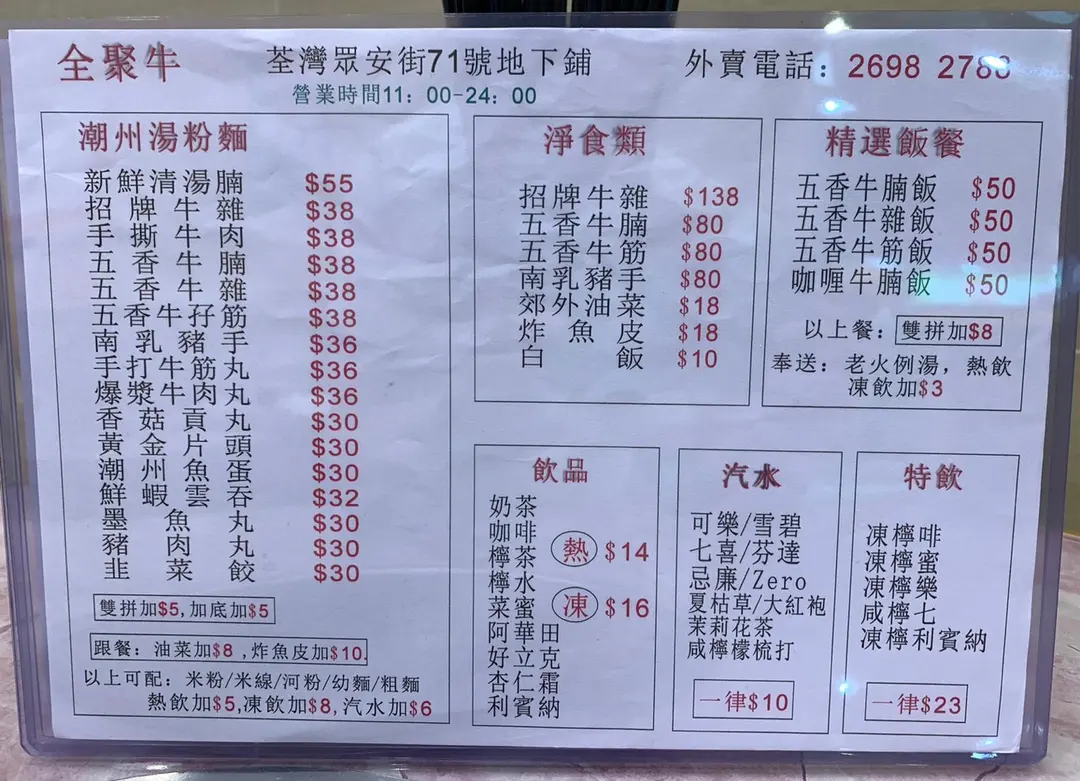 全聚牛
荃灣眾安街71號地下鋪
外賣電話：2698 2788
營業時間11：00-24：00
潮州湯粉麵
新鮮清湯腩 $55
招牌牛雜 $38
手撕牛肉 $38
五香牛腩 $38
五香牛雜 $38
五香牛孖筋 $38
南乳豬手 $36
手打牛筋丸 $36
爆漿牛肉丸 $36
香菇貢丸 $30
黃金片頭 $30
潮州魚蛋 $30
鮮蝦雲吞 $32
墨魚丸 $30
豬肉丸 $30
韭菜餃 $30
雙拼加$5,加底加$5
跟餐：油菜加$8 ,炸魚皮加$10.
以上可配：米粉/米線/河粉/幼麵/粗麵
熱飲加$5,凍飲加$8,汽水加$6
淨食類
招牌牛雜 $138
五香牛腩 $80
五香牛筋 $80
南乳豬手 $80
郊外油菜 $18
炸魚皮 $18
白飯 $10
精選飯餐
五香牛腩飯 $50
五香牛雜飯 $50
五香牛筋飯 $50
咖喱牛腩飯 $50
以上餐：雙拼加$8
奉送：老火例湯，熱飲
凍飲加$3
飲品
奶茶
咖啡
檸茶
檸水
菜蜜
阿華田
好立克
杏仁霜
利賓納
熱 $14
凍 $16
汽水
可樂/雪碧
七喜/芬達
忌廉/Zero
夏枯草/大紅袍
茉莉花茶
咸檸檬梳打
一律$10
特飲
凍檸啡
凍檸蜜
凍檸樂
咸檸七
凍檸利賓納
一律$23